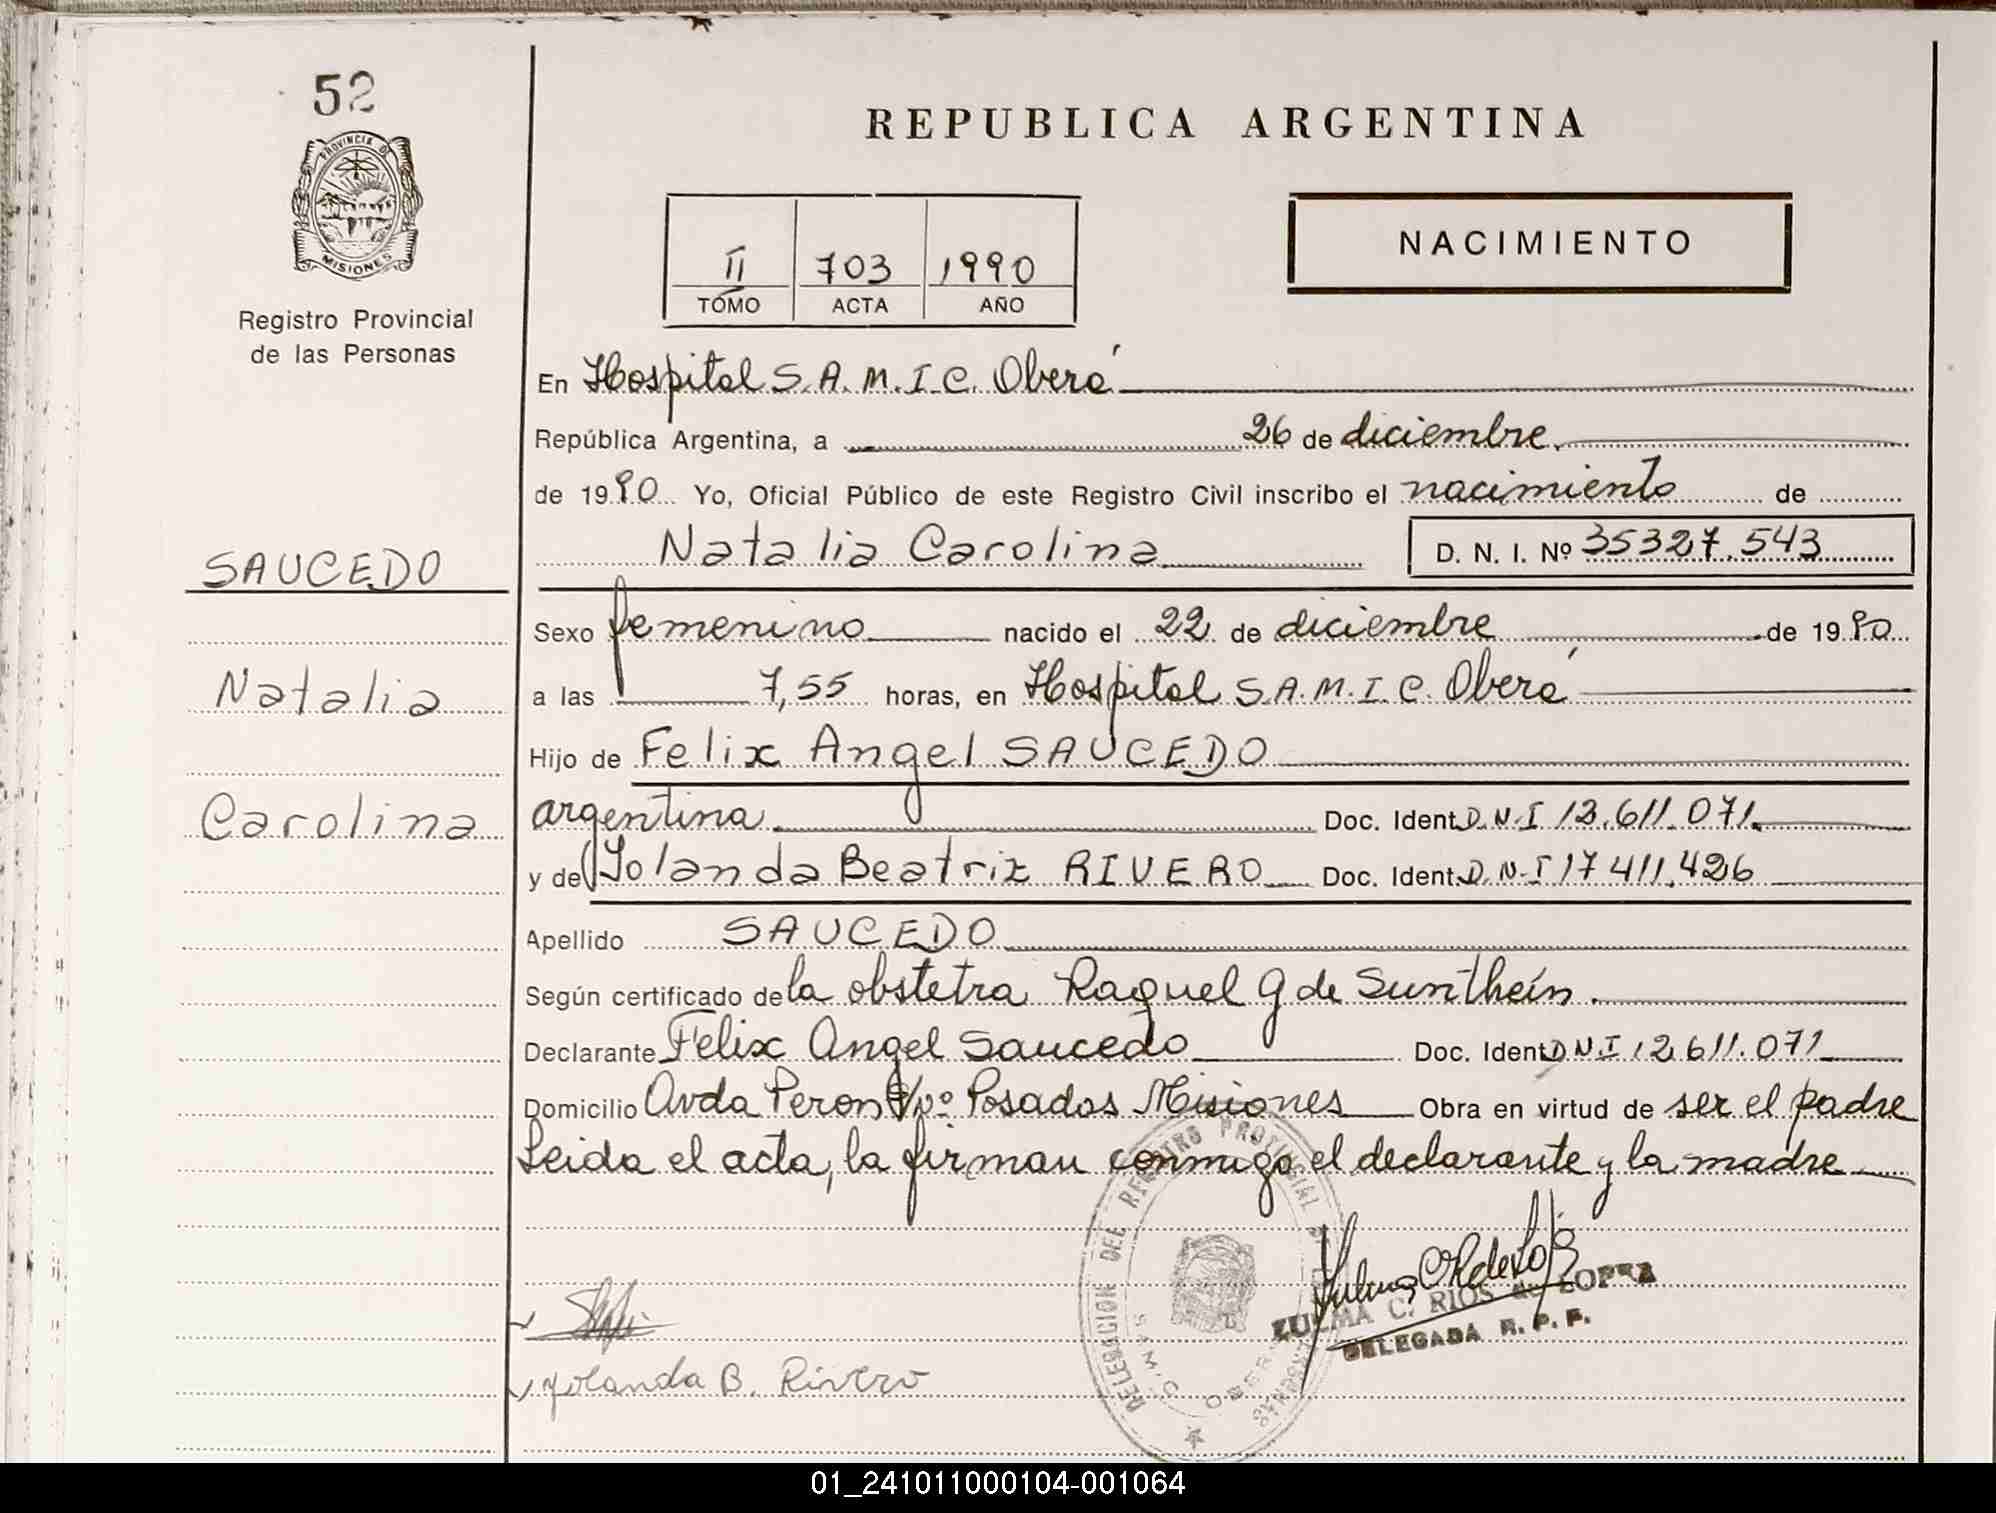 52
PROVINCIA DE
MISIONES
Registro Provincial
de las Personas
SAUCEDO
Natalia
Carolina
REPUBLICA ARGENTINA
II 703 1990
TOMO ACTA AÑO
NACIMIENTO
En Hospital S.A.M.I.C. Oberá
República Argentina, a 26 de diciembre
de 1990 Yo, Oficial Público de este Registro Civil inscribo el nacimiento de
Natalia Carolina D. N. I. Nº 35327.543
Sexo femenino nacido el 22 de diciembre de 1990
a las 7,55 horas, en Hospital S.A.M.I.C. Oberá
Hijo de Felix Angel SAUCEDO
argentina Doc. Ident. D.N.I 12.611.071
y de Yolanda Beatriz RIVERO Doc. Ident. D.N.I 17411.426
Apellido SAUCEDO
Según certificado de la obstetra Raquel G de Sunthein.
Declarante Felix Angel Saucedo Doc. Ident. D.N.I 12.611.071
Domicilio Avda Peron S/nº Posadas Misiones Obra en virtud de ser el padre
Leida el acta, la firman conmigo el declarante y la madre
DELEGACION DEL REGISTRO PROVINCIAL DE LAS PERSONAS
S.A.M.I.C. OBERA
ZULMA C. RIOS de LOPEZ
DELEGADA R. P. P.
Yolanda B. Rivero
01_241011000104-001064